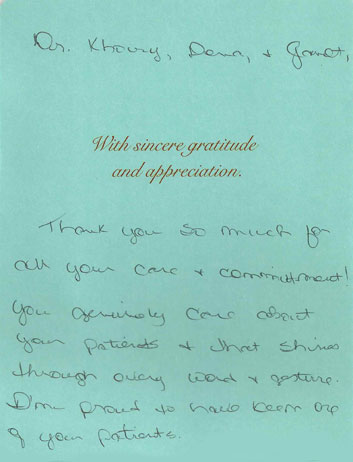 Dr. Khoury, Dena, & Garnet,
With sincere gratitude
and appreciation.
Thank you so much for
all your care & committment!
You genuinely care about
your patients & that shines
through every word & gesture.
I'm proud to have been one
of your patients.